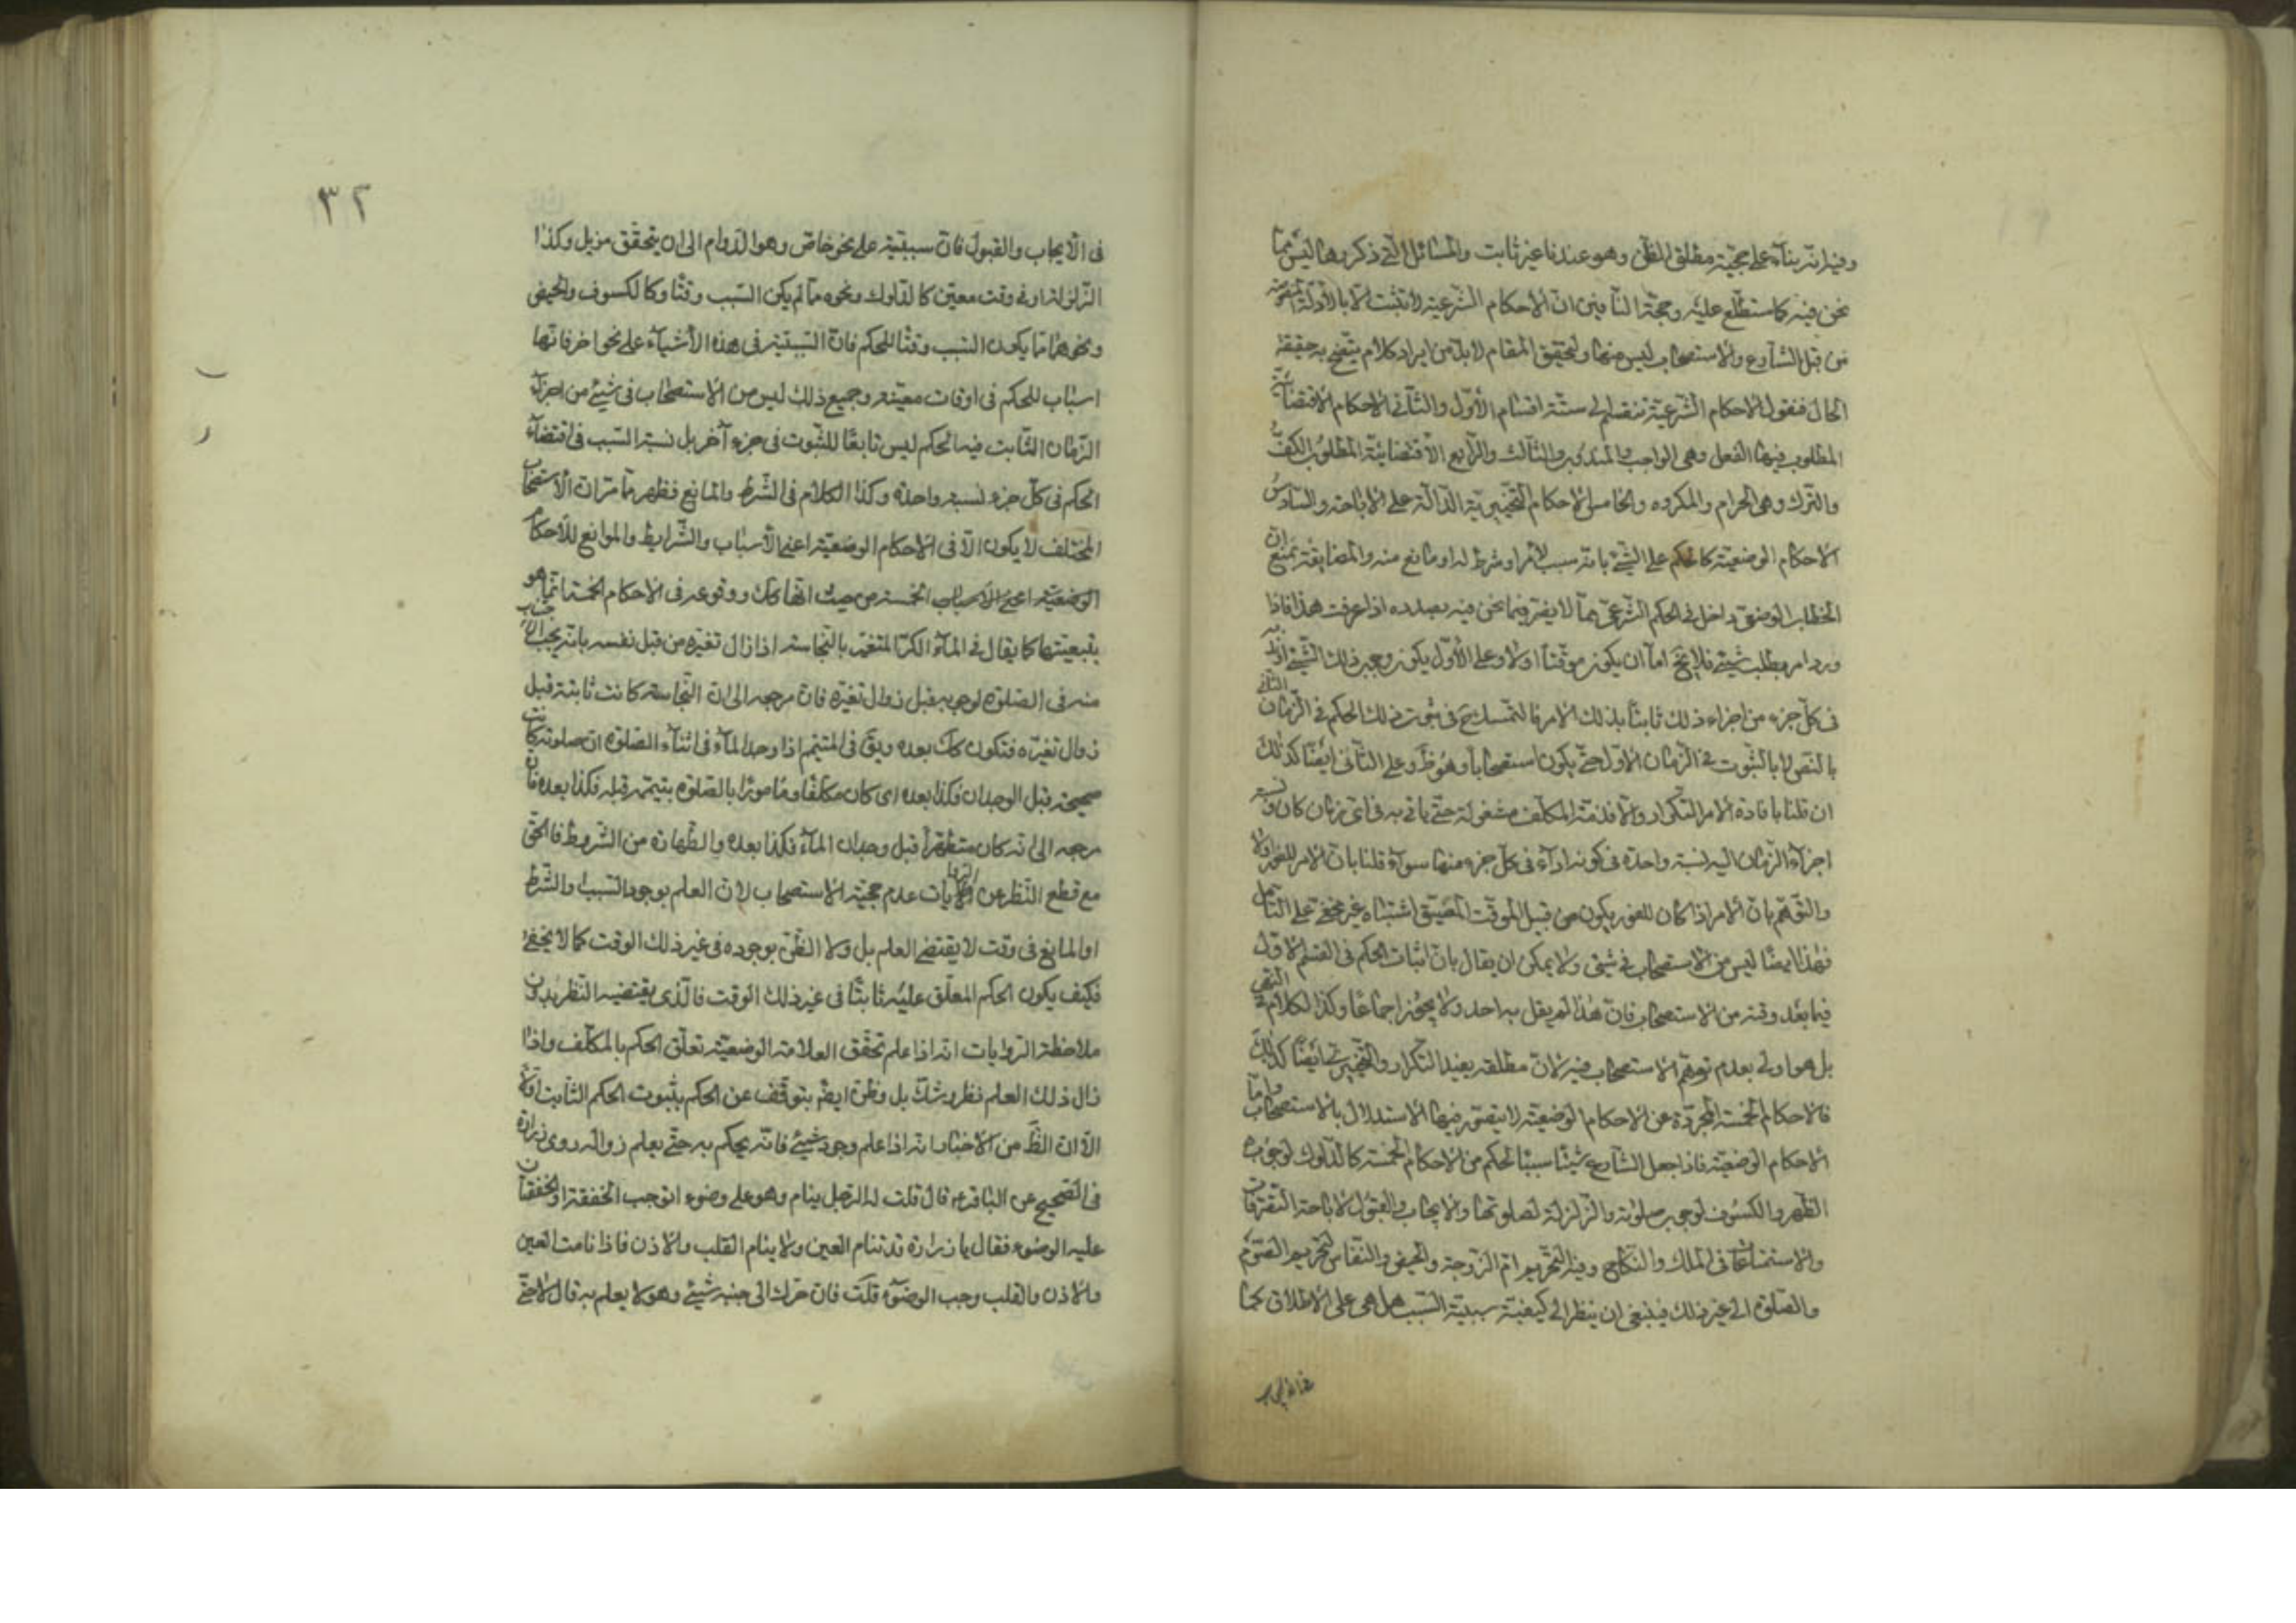 وفيه انه بناء على حجية مطلق الظن وهو عندنا غير ثابت والمسائل التي ذكروها ليس مما
نحن فيه كما ستطلع عليه وحجة النافين ان الاحكام الشرعية لا تثبت الا بالادلة المنصوصة
من قبل الشارع والاستصحاب ليس منها ولتحقيق المقام لا بد من ايراد كلام يتضح به حقيقة
الحال فنقول الاحكام الشرعية تنقسم الى ستة اقسام الاول والثاني الاحكام الاقتضائية
المطلوب فيها الفعل وهي الواجب والمندوب والثالث والرابع الاقتضائية المطلوب الكف
والترك وهي الحرام والمكروه والخامس الاحكام التخييرية الدالة على الاباحة والسادس
الاحكام الوضعية كالحكم على الشيء بانه سبب لامر او شرط له او مانع منه والمضايقة بمنع ان
الخطاب الوضعي داخل في الحكم الشرعي مما لا يضر فيما نحن فيه بصدده اذا عرفت هذا فاذا
ورد امر بطلب شيء فلا يخ اما ان يكون موقتا او لا وعلى الاول يكون وجوب ذلك الشيء او ندبه
في كل جزء من اجزاء ذلك ثابتا بذلك الامر فالتمسك ح في ثبوت ذلك الحكم في الزمان الثاني
بالنص لا بالثبوت في الزمان الاول حتى يكون استصحابا وهو ظ وعلى الثاني ايضا كذلك
ان قلنا بافادة الامر التكرار والا فذمة المكلف مشغولة حتى ياتي به في اي زمان كان ونسبة
اجزاء الزمان اليه نسبة واحدة في كونه اداء في كل جزء منها سواء قلنا بان الامر للفور او لا
والتوهم بان الامر اذا كان للفور يكون من قبيل الموقت المضيق اشتباه غير مخفي على المتامل
فهذا ايضا ليس من الاستصحاب في شيء ولا يمكن ان يقال بان اثبات الحكم في القسم الاول
فيما بعد وقته من الاستصحاب فان هذا لم يقل به احد ولا يجوز اجماعا وكذا الكلام في النهي
بل هو اولى بعدم توهم الاستصحاب فيه لان مطلقه يفيد التكرار والتخييري ايضا كذلك
فالاحكام الخمسة المجردة عن الاحكام الوضعية لا يتصور فيها الاستدلال بالاستصحاب واما
الاحكام الوضعية فاذا جعل الشارع شيئا سببا لحكم من الاحكام الخمسة كالدلوك لوجوب
الظهر والكسوف لوجوب صلوته والزلزلة لصلوتها والايجاب والقبول لاباحة التصرفات
والاستمتاعات في الملك والنكاح وفيه لتحريم ام الزوجة والحيض والنفاس لتحريم الصوم
والصلوة الى غير ذلك فينبغي ان ينظر الى كيفية سببية السبب هل هي على الاطلاق كما
٣٢
في الايجاب والقبول فان سببيته على نحو خاص وهو الدوام الى ان يتحقق مزيل وكذا
الزلزلة او في وقت معين كالدلوك ونحوه مما لم يكن السبب وقتا وكالكسوف والحيض
ونحوهما مما يكون السبب وقتا للحكم فان السببية في هذه الاشياء على نحو اخر فانها
اسباب للحكم في اوقات معينة وجميع ذلك ليس من الاستصحاب في شيء من اجزاء
الزمان الثابت فيه الحكم ليس تابعا للثبوت في جزء آخر بل نسبة السبب في اقتضاء
الحكم في كل جزء نسبة واحدة وكذا الكلام في الشرط والمانع فظهر مما مر ان الاستصحاب
المختلف لا يكون الا في الاحكام الوضعية اعني الاسباب والشرايط والموانع للاحكام
الخمسة من حيث انها كك ووقوعه في الاحكام الخمسة انما هو
بتبعيتها كما يقال في الماء الكر المتغير بالنجاسة اذا زال تغيره من قبل نفسه بانه يجب الاجتناب
منه في الصلوة لوجوبه قبل زوال تغيره فان مرجعه الى ان النجاسة كانت ثابتة قبل
زوال تغيره فتكون كك بعده ويق في المتيمم اذا وجد الماء في اثناء الصلوة ان صلوته كانت
صحيحة قبل الوجدان فكذا بعده اي كان مكلفا ومامورا بالصلوة بتيممه قبله فكذا بعده فان
مرجعه الى انه كان متطهرا قبل وجدان الماء فكذا بعده والطهارة من الشروط فالحق
مع قطع النظر عن الروايات عدم حجية الاستصحاب لان العلم بوجود السبب او الشرط
او المانع في وقت لا يقتضي العلم بل ولا الظن بوجوده في غير ذلك الوقت كما لا يخفى
فكيف يكون الحكم المعلق عليه ثابتا في غير ذلك الوقت فالذي يقتضيه النظر بدون
ملاحظة الروايات انه اذا علم تحقق العلامة الوضعية تعلق الحكم بالمكلف واذا
زال ذلك العلم بطرو شك بل وظن ايضا يتوقف عن الحكم بثبوت الحكم الثابت اولا
الا ان الظ من الاخبار انه اذا علم وجود شيء فانه يحكم به حتى يعلم زواله روى زرارة
في الصحيح عن الباقر ع قال قلت له الرجل ينام وهو على وضوء اتوجب الخفقة او الخفقتان
عليه الوضوء فقال يا زرارة قد تنام العين ولا ينام القلب والاذن فاذا نامت العين
والاذن والقلب وجب الوضوء قلت فان حرك الى جنبه شيء وهو لا يعلم به قال لا حتى